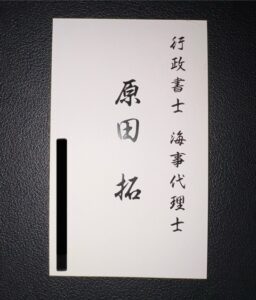 行政書士 海事代理士
原田 拓